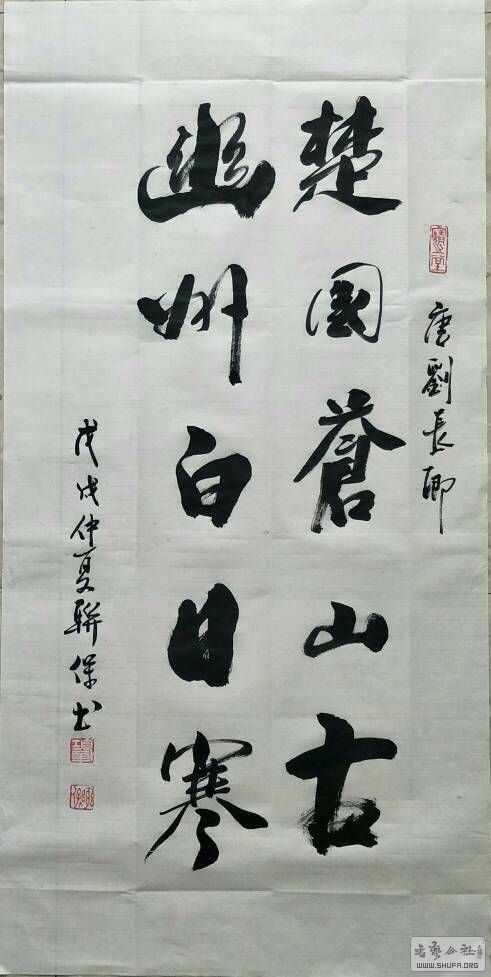 唐劉長卿
楚國蒼山古
幽州白日寒
戊戌仲夏聯保书
書藝公社
WWW.SHUFA.ORG